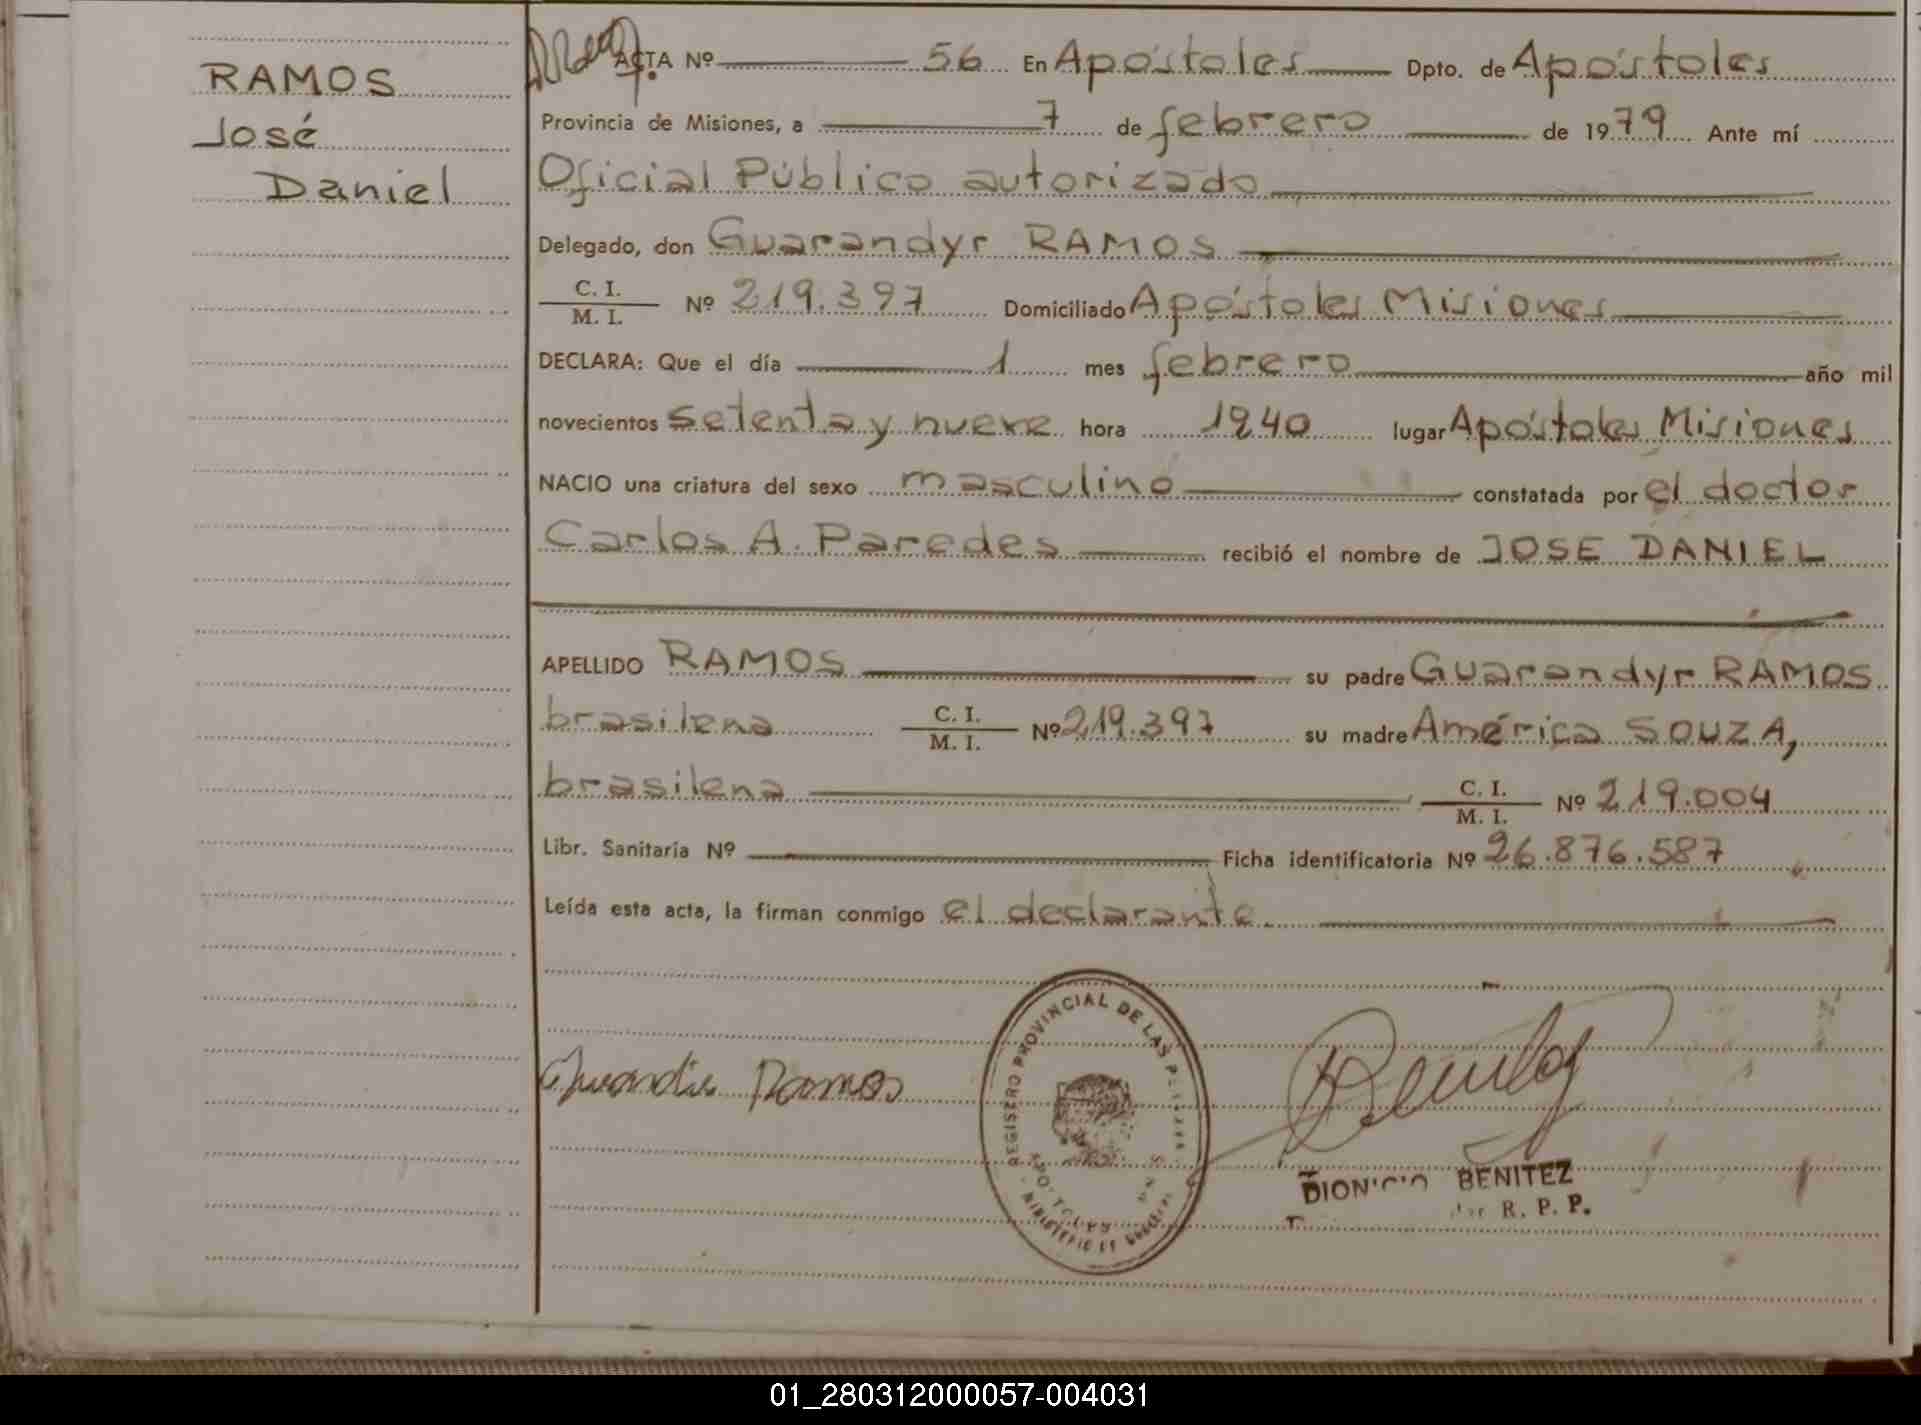 RAMOS
José
Daniel
ACTA Nº 56 En Apóstoles Dpto. de Apóstoles
Provincia de Misiones, a 7 de febrero de 1979 Ante mí
Oficial Público autorizado
Delegado, don Guarandyr RAMOS
C. I.
M. I. Nº 219.397 Domiciliado Apóstoles Misiones
DECLARA: Que el día 1 mes febrero año mil
novecientos setenta y nueve hora 1240 lugar Apóstoles Misiones
NACIO una criatura del sexo masculino constatada por el doctor
Carlos A. Paredes recibió el nombre de JOSE DANIEL
APELLIDO RAMOS su padre Guarandyr RAMOS
brasilena C. I.
M. I. Nº 219.397 su madre América SOUZA,
brasilena C. I.
M. I. Nº 219.004
Libr. Sanitaria Nº Ficha identificatoria Nº 26.876.587
Leída esta acta, la firman conmigo el declarante.
REGISTRO PROVINCIAL DE LAS
MINISTERIO DE
Ramos
DIONICIO BENITEZ
R. P. P.
01_280312000057-004031